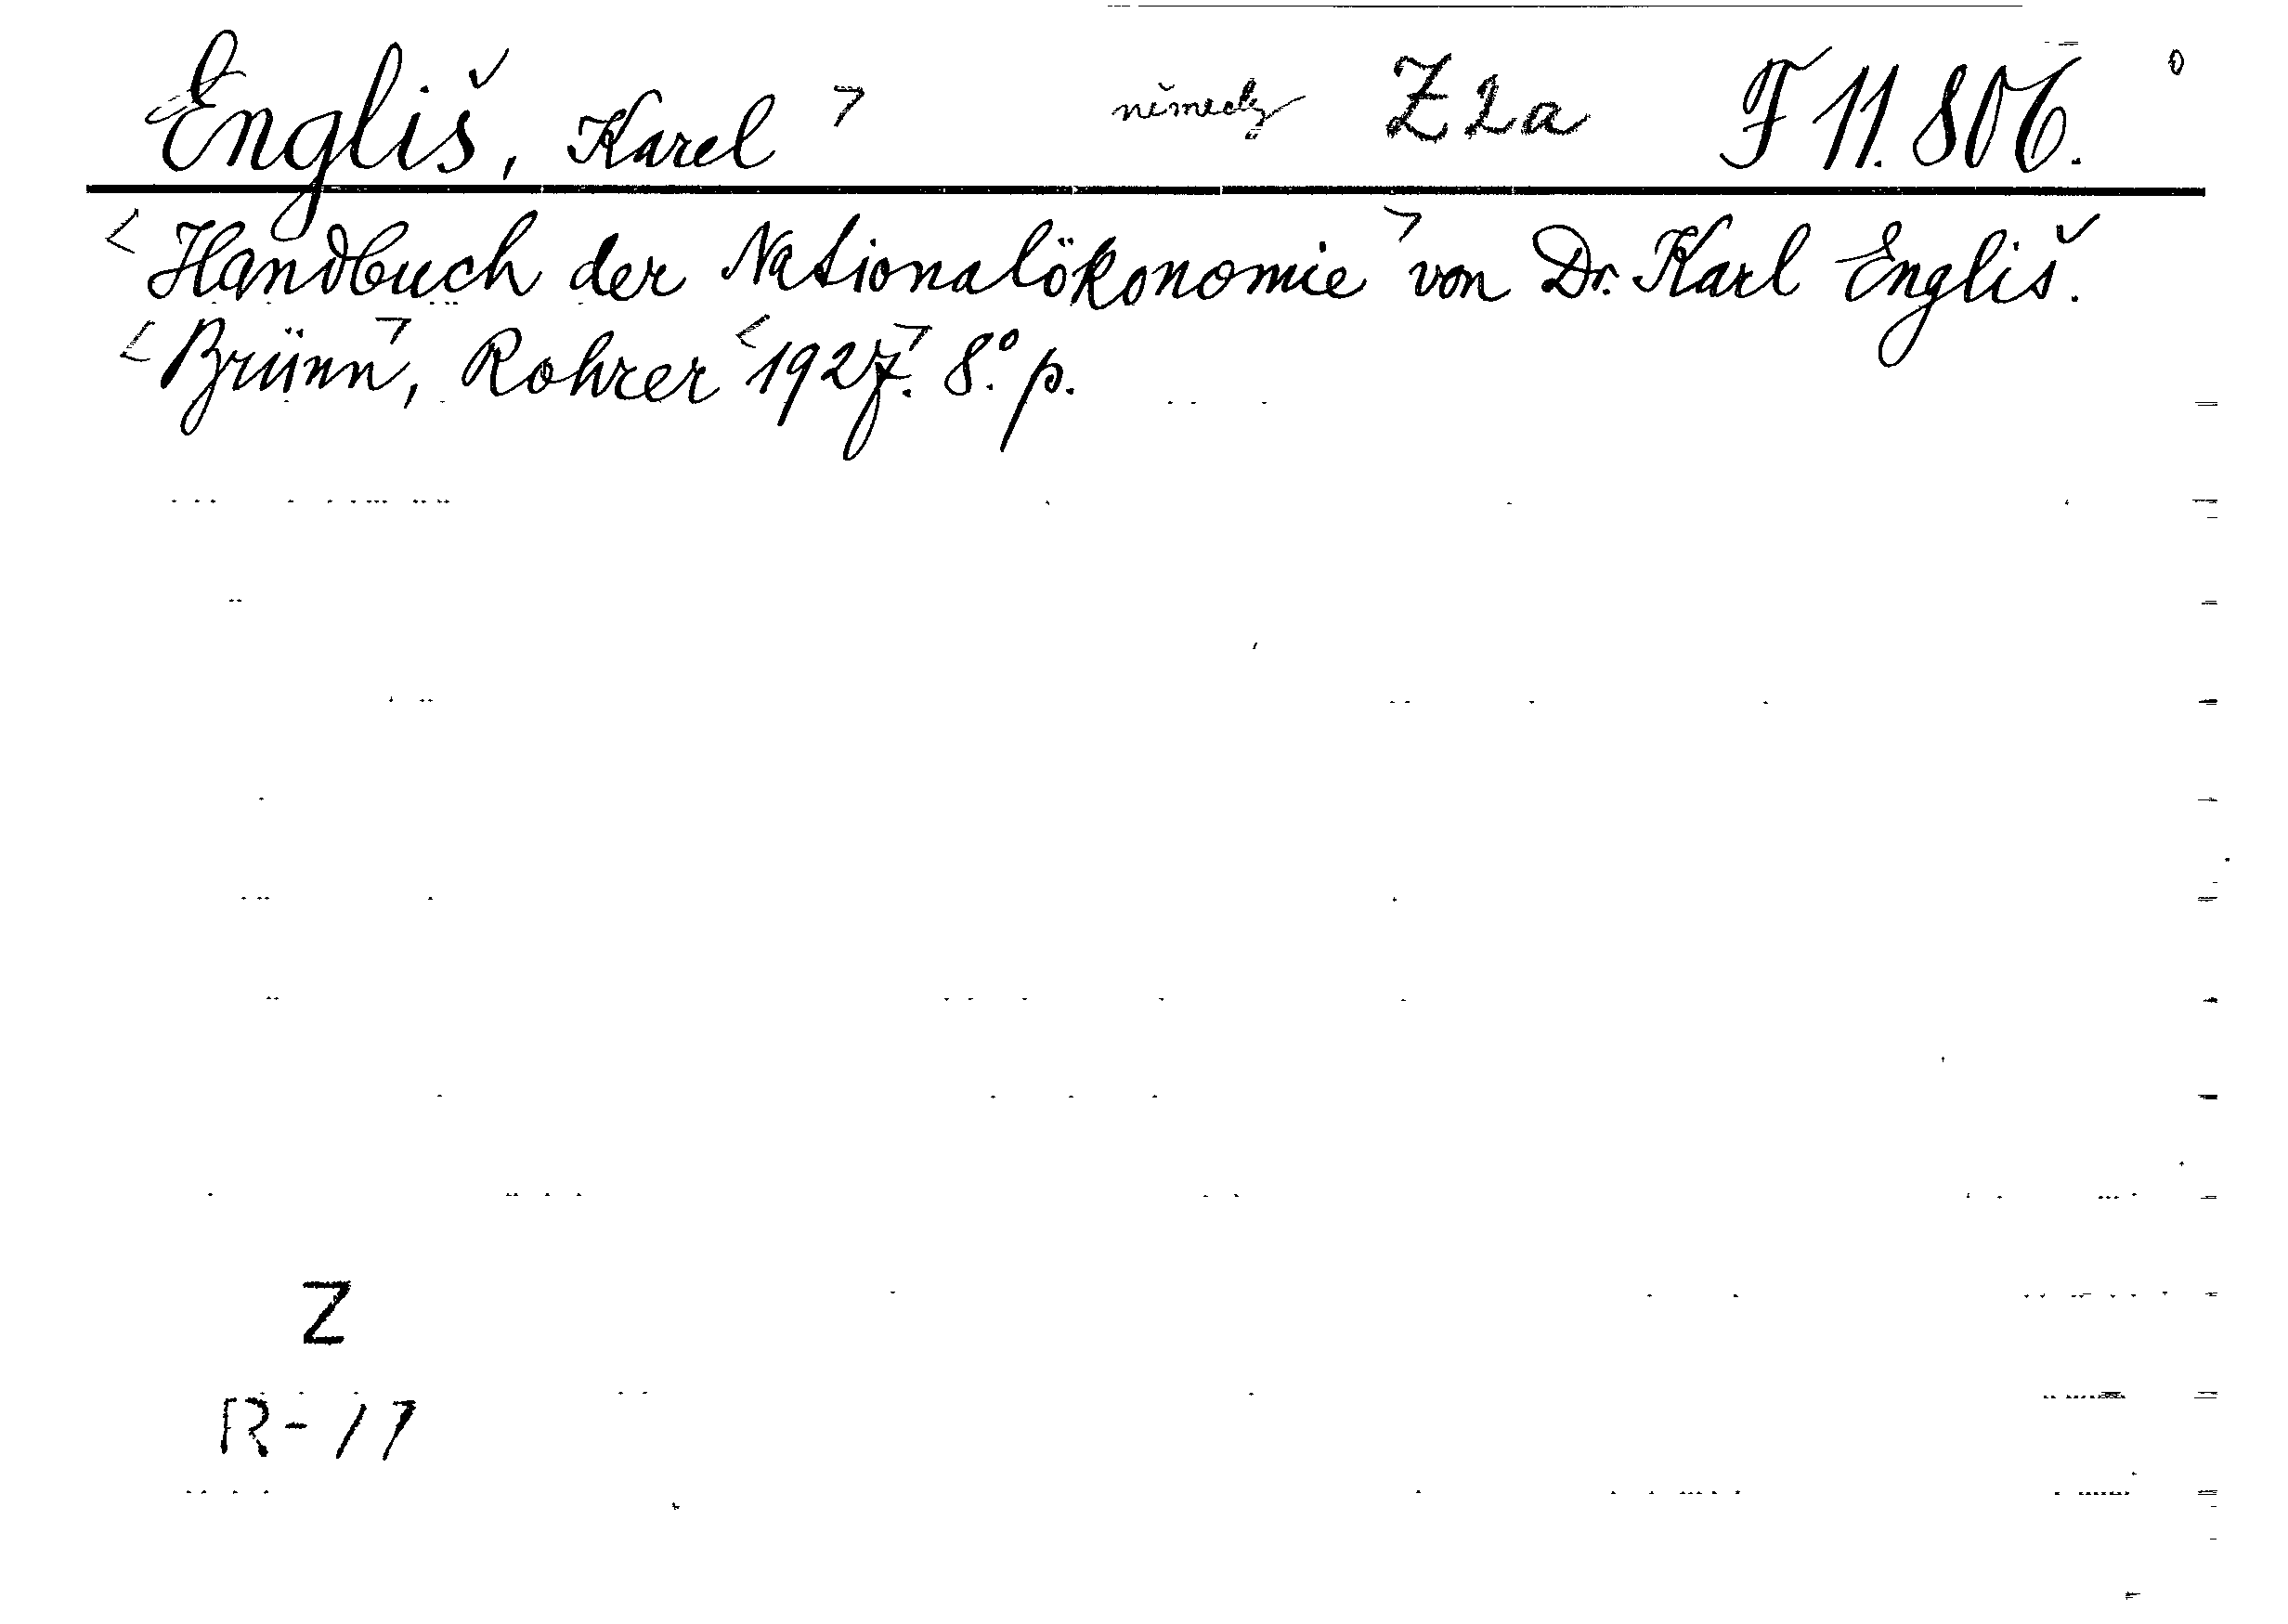 Engliš, Karel > německy Z2a F 11.806.
<Handbuch der Nationalökonomie> von Dr. Karl Engliš.
<Brünn>, Rohrer <1927>. 8.° p.
Z
R-17